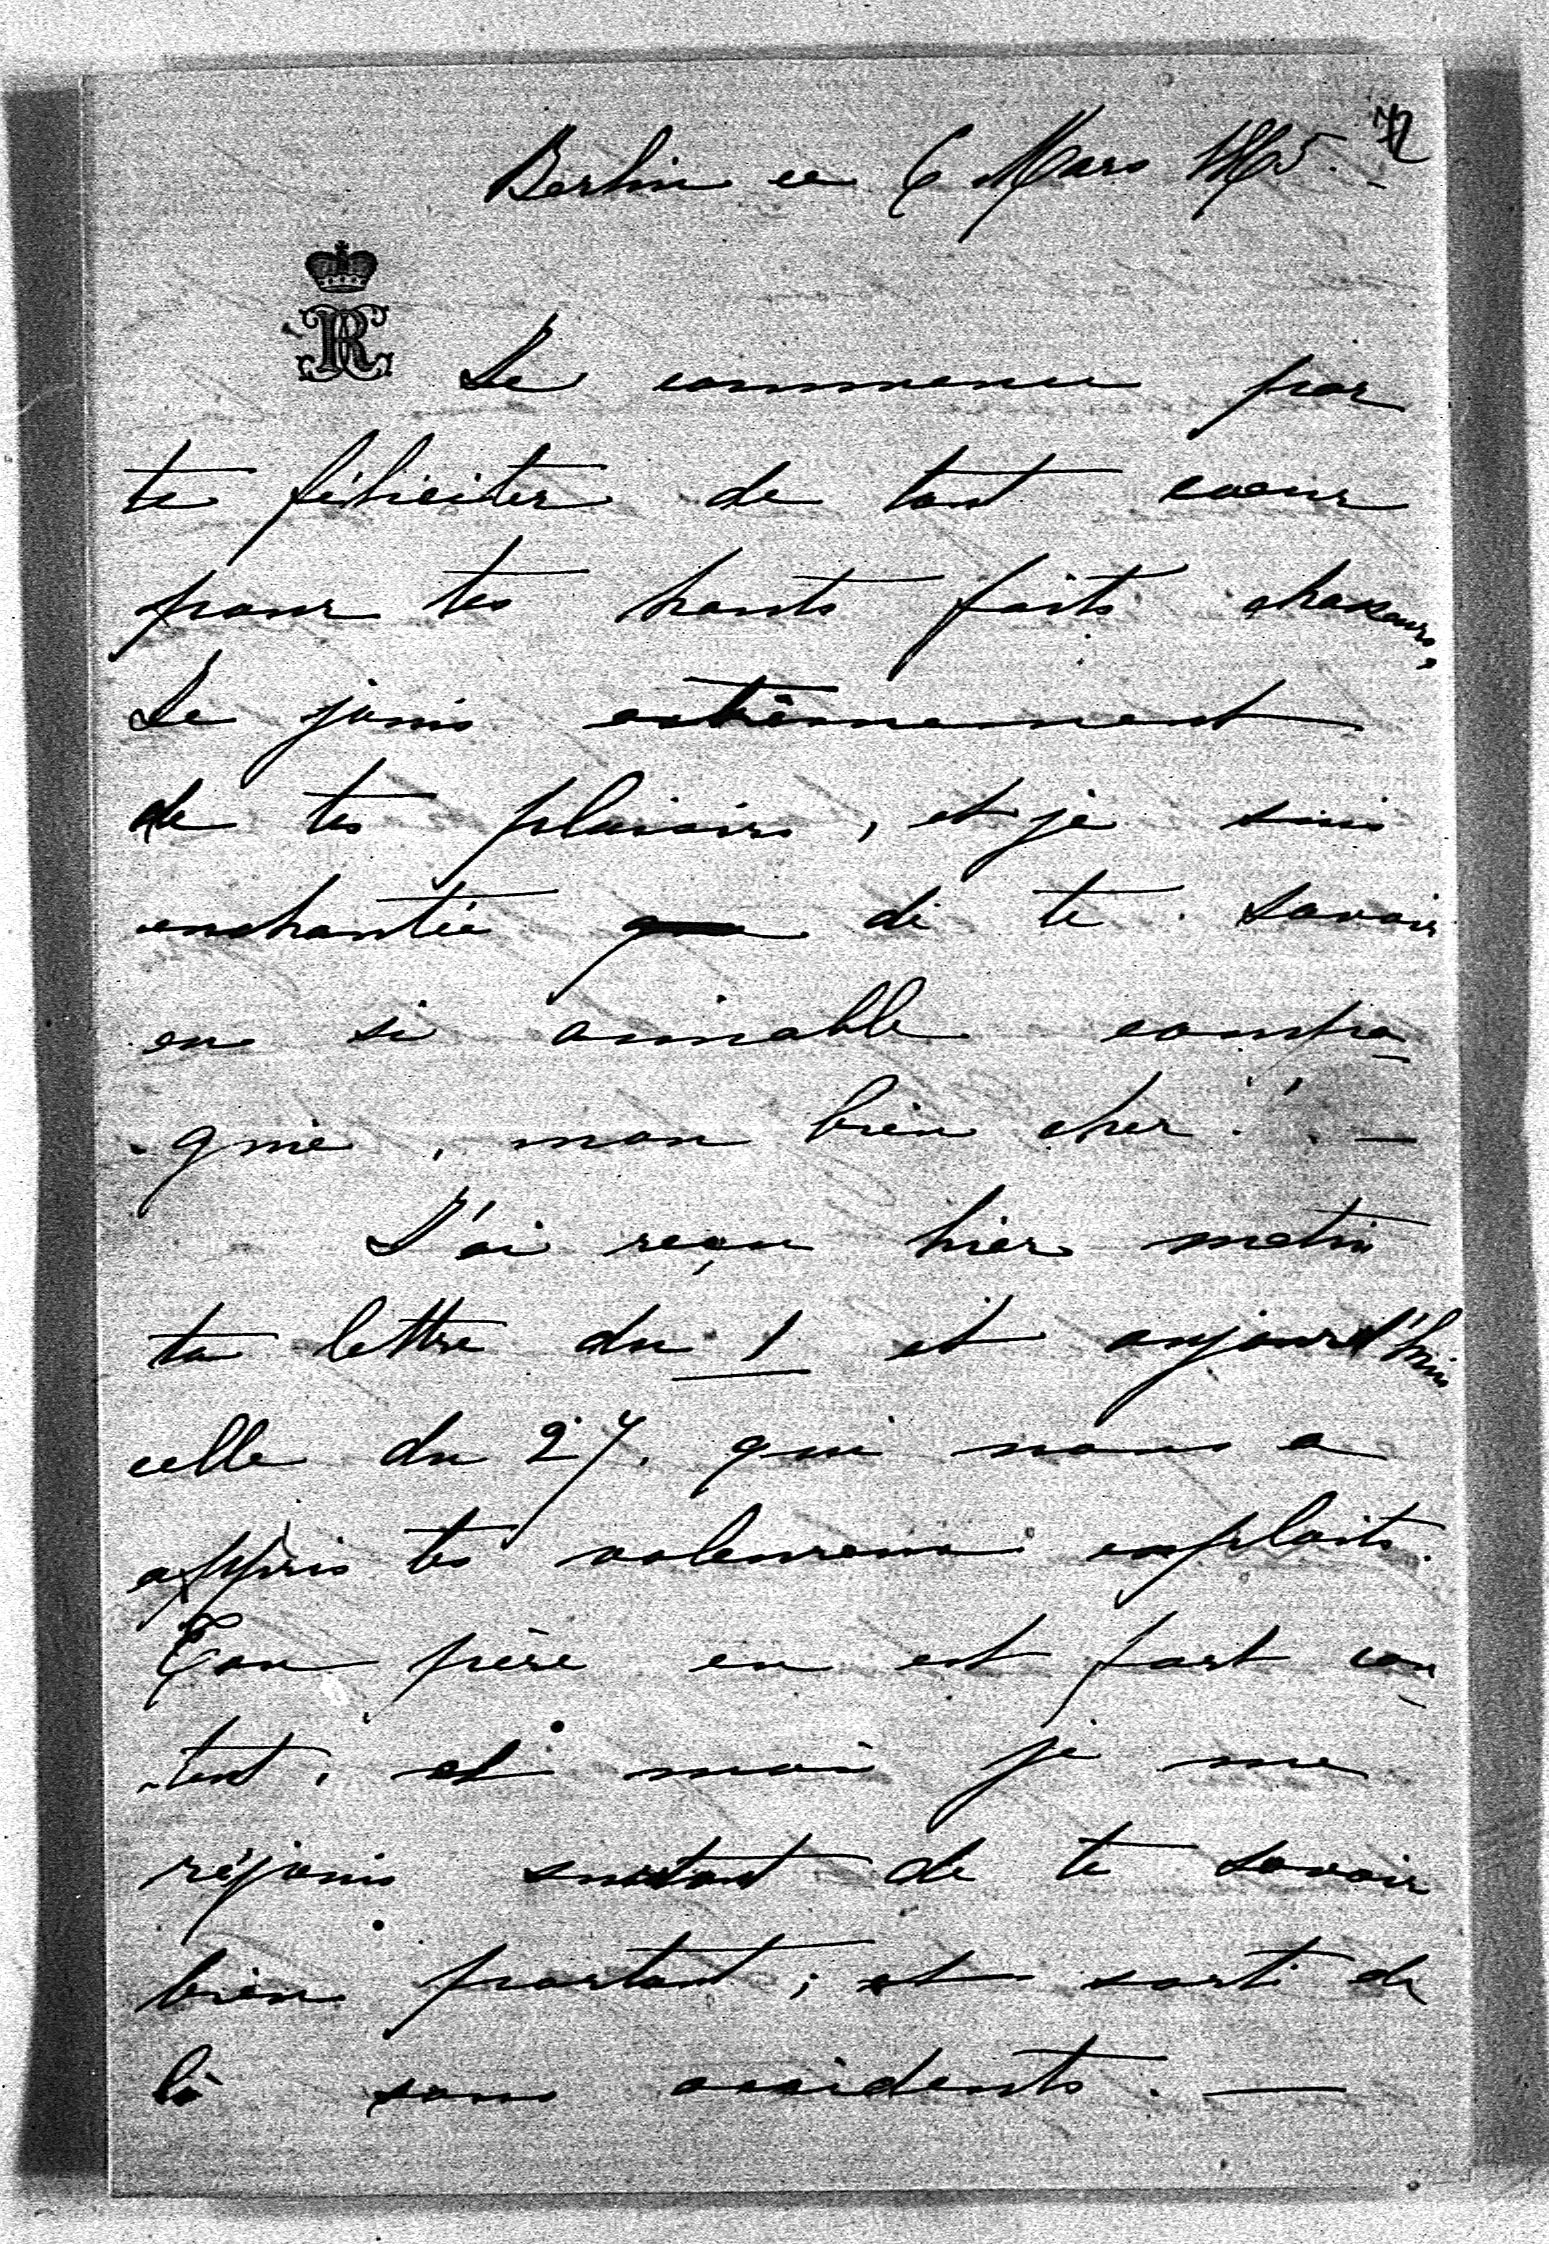 72
Berlin ce 6 Mars 1865.
Je commence par
te féliciter de tout coeur
pour tes hauts faits chasseurs,
Je jouis extrêmement
de tes plaisirs, et je suis
enchantée de te savoir
en si aimable compa-
-gnie, mon bien cher! -
J'ai reçu hier matin
ta lettre du 1 et aujourd'hui
celle du 27. qui nous a
appris tes valeureux exploits.
Ton père en est fort con-
-tent, et moi je me
réjouis surtout de te savoir
bien portant; et sorti de
là sans accidents. -